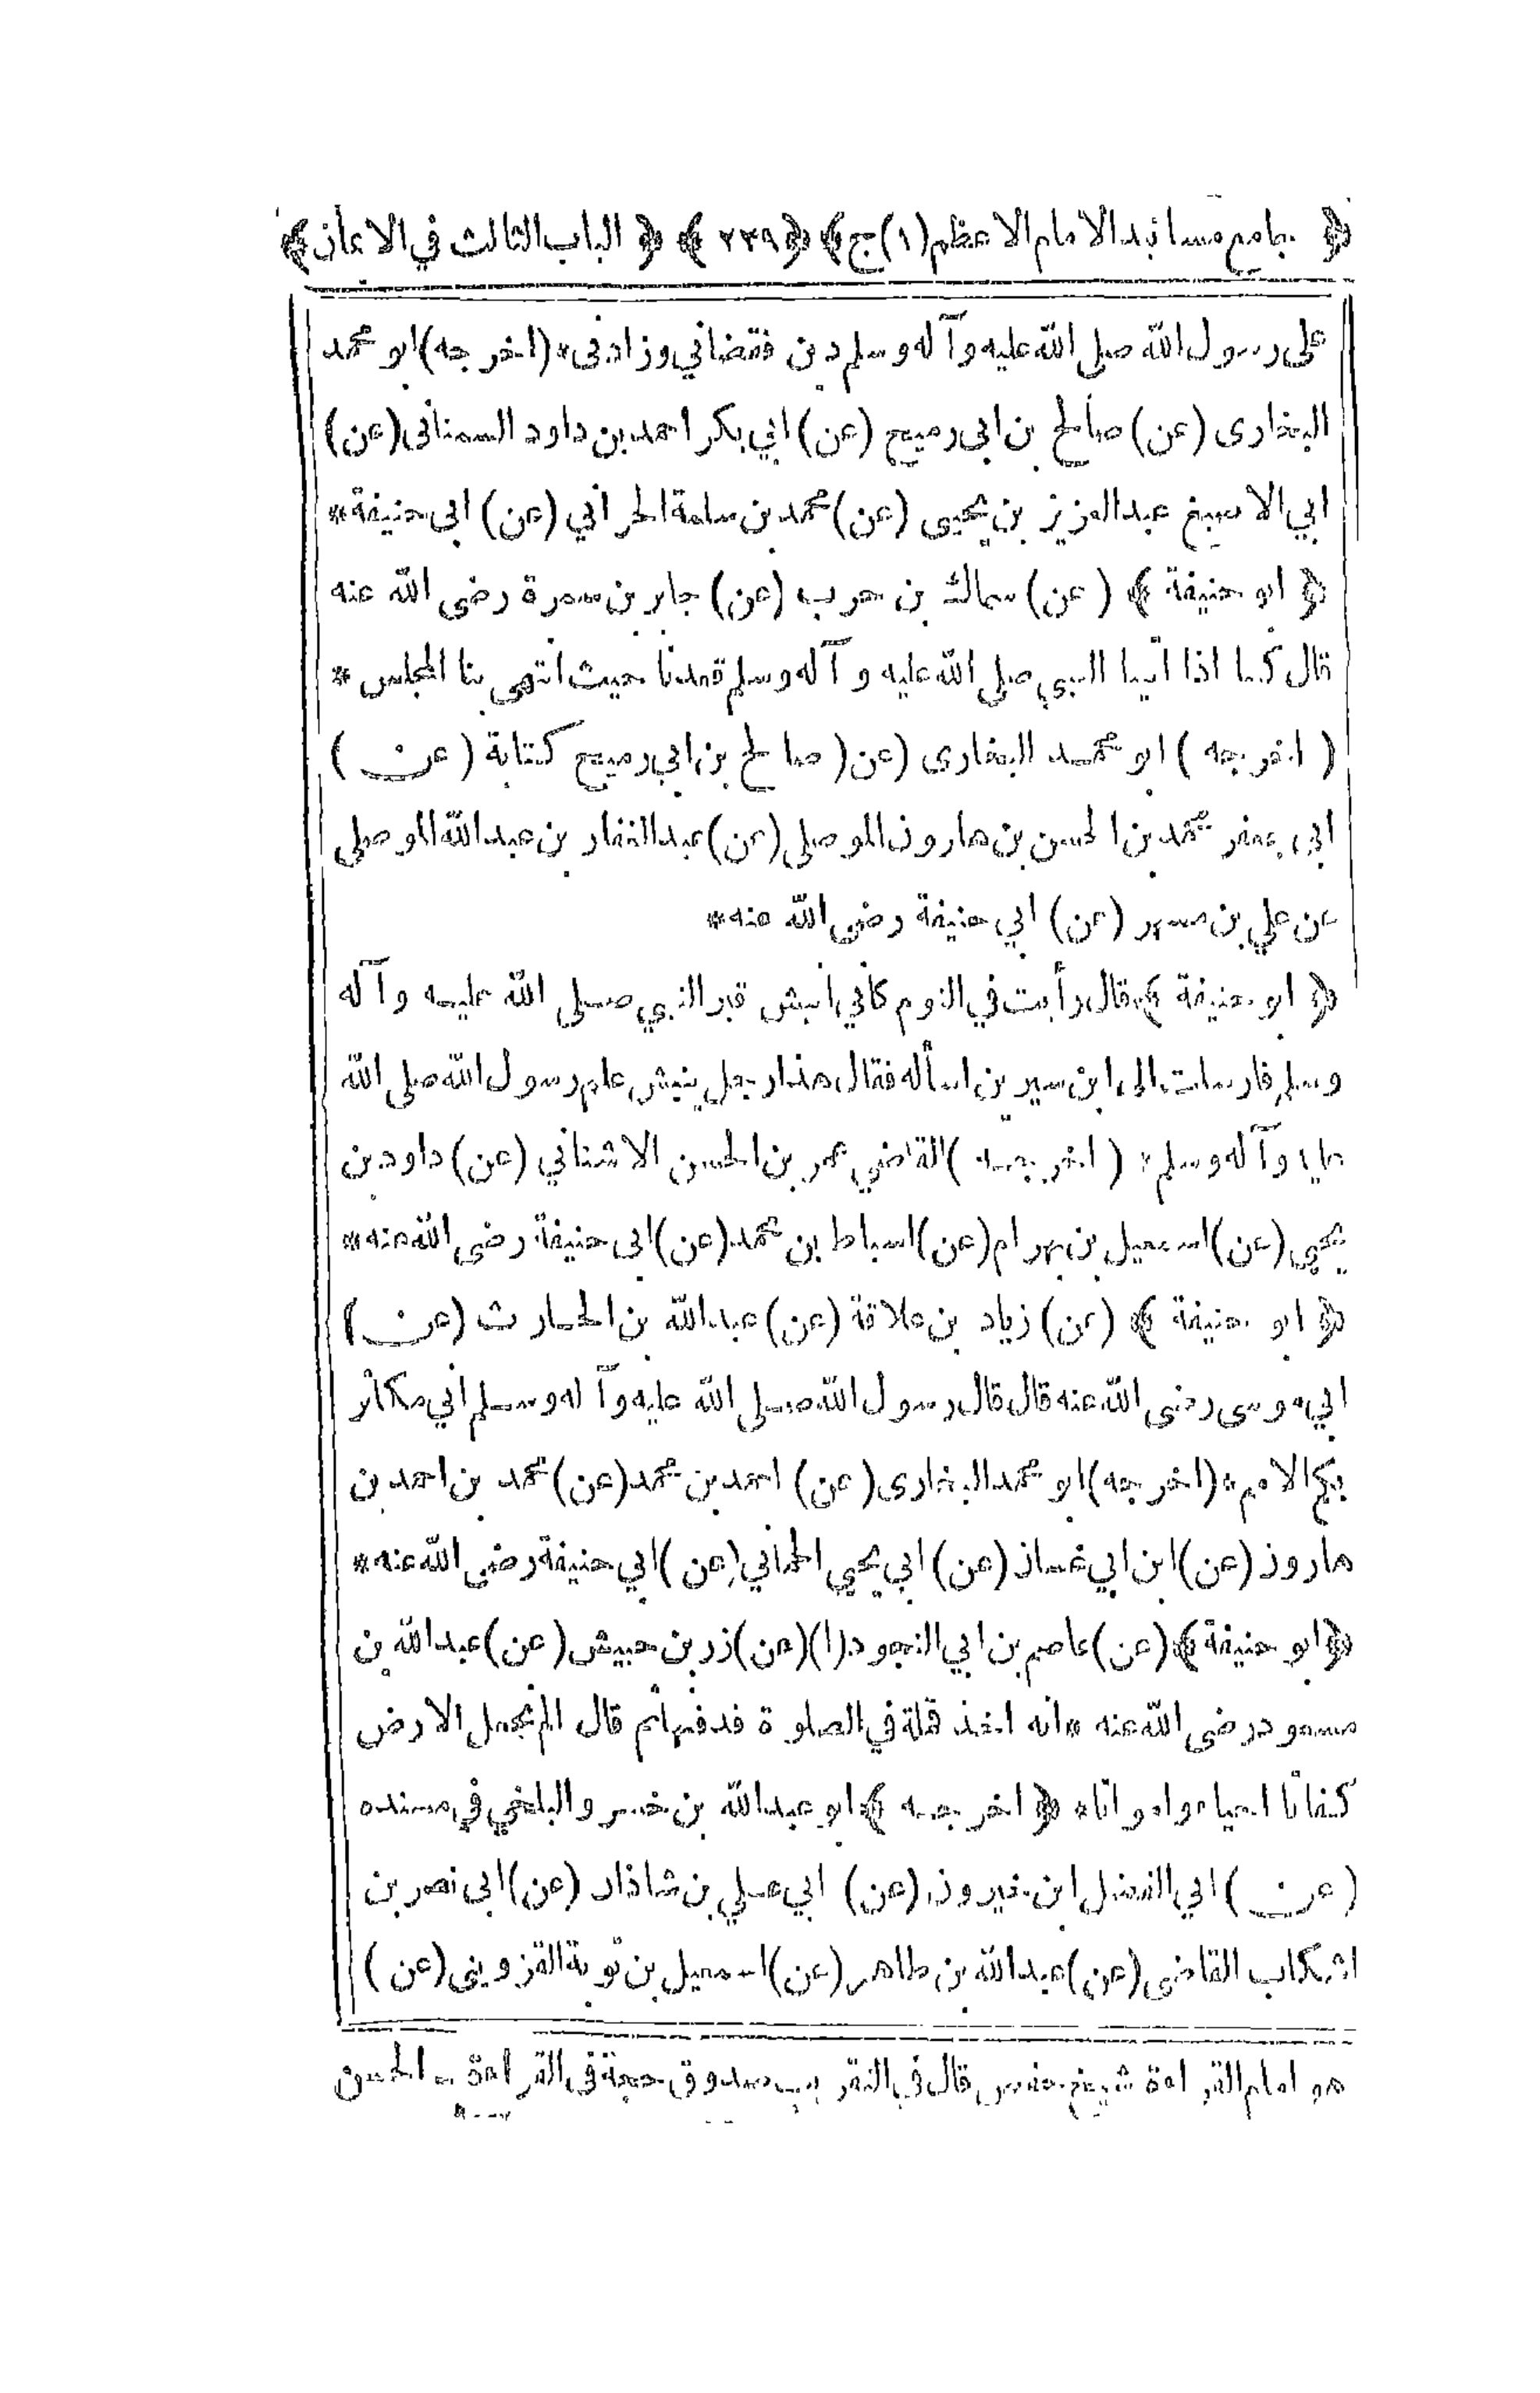 ﴿ جامع مسانيد الامام الاعظم (١) ج ﴾ ﴿ ٢٣٩ ﴾ ﴿ الباب الثالث في الايمان ﴾
على رسول الله صلى الله عليه وآله وسلم دين فقضاني وزادنى * (اخرجه) ابو محمد
البخارى (عن) صالح بن ابى رميح (عن) ابي بكر احمد بن داود السمنانى (عن)
ابي الاصبغ عبد العزيز بن يحيى (عن) محمد بن سلمة الحراني (عن) ابى حنيفة *
﴿ ابو حنيفة ﴾ (عن) سماك بن حرب (عن) جابر بن سمرة رضى الله عنه
قال كنا اذا اتينا النبي صلى الله عليه وآله وسلم قعدنا حيث انتهى بنا المجلس *
(اخرجه) ابو محمد البخارى (عن( صالح بن ابي رميح كتابة (عن)
ابي جعفر محمد بن الحسن بن هارون الموصلى (عن) عبد الغفار بن عبد الله الموصلى
عن علي بن مسهر (عن) ابي حنيفة رضى الله عنه *
﴿ ابو حنيفة ﴾ قال رأيت في النوم كاني انبش قبر النبي صلى الله عليه وآله
وسلم فارسلت الى ابن سيرين اسأله فقال هذا رجل ينبش علم رسول الله صلى الله
عليه وآله وسلم * (اخرجه) القاضي عمر بن الحسن الاشناني (عن) داود بن
يحيى (عن) اسمعيل بن بهرام (عن) اسباط بن محمد (عن) ابى حنيفة رضى الله عنه *
﴿ ابو حنيفة ﴾ (عن) زياد بن علاقة (عن) عبد الله بن الحارث (عن)
ابي موسى رضى الله عنه قال قال رسول الله صلى الله عليه وآله وسلم اني مكاثر
بكم الامم * (اخرجه) ابو محمد البخارى (عن) احمد بن محمد (عن) محمد بن احمد بن
هارون (عن) ابن ابي غسان (عن) ابي يحيى الحماني (عن) ابي حنيفة رضى الله عنه *
﴿ ابو حنيفة ﴾ (عن) عاصم بن ابي النجود (١) (عن) زر بن حبيش (عن) عبد الله بن
مسعود رضى الله عنه * انه اخذ قملة في الصلوة فدفنها ثم قال الم نجعل الارض
كفاتا احياء وامواتا * ﴿ اخرجه ﴾ ابو عبد الله بن خسرو البلخي في مسنده
(عن) ابي الفضل ابن خيرون (عن) ابي علي بن شاذان (عن) ابى نصر بن
اشكاب القاضى (عن) عبد الله بن طاهر (عن) اسمعيل بن توبة القزوينى (عن)
هو امام القراءة شيخ حفص قال فى التقريب صدوق حجة فى القراءة الحسن